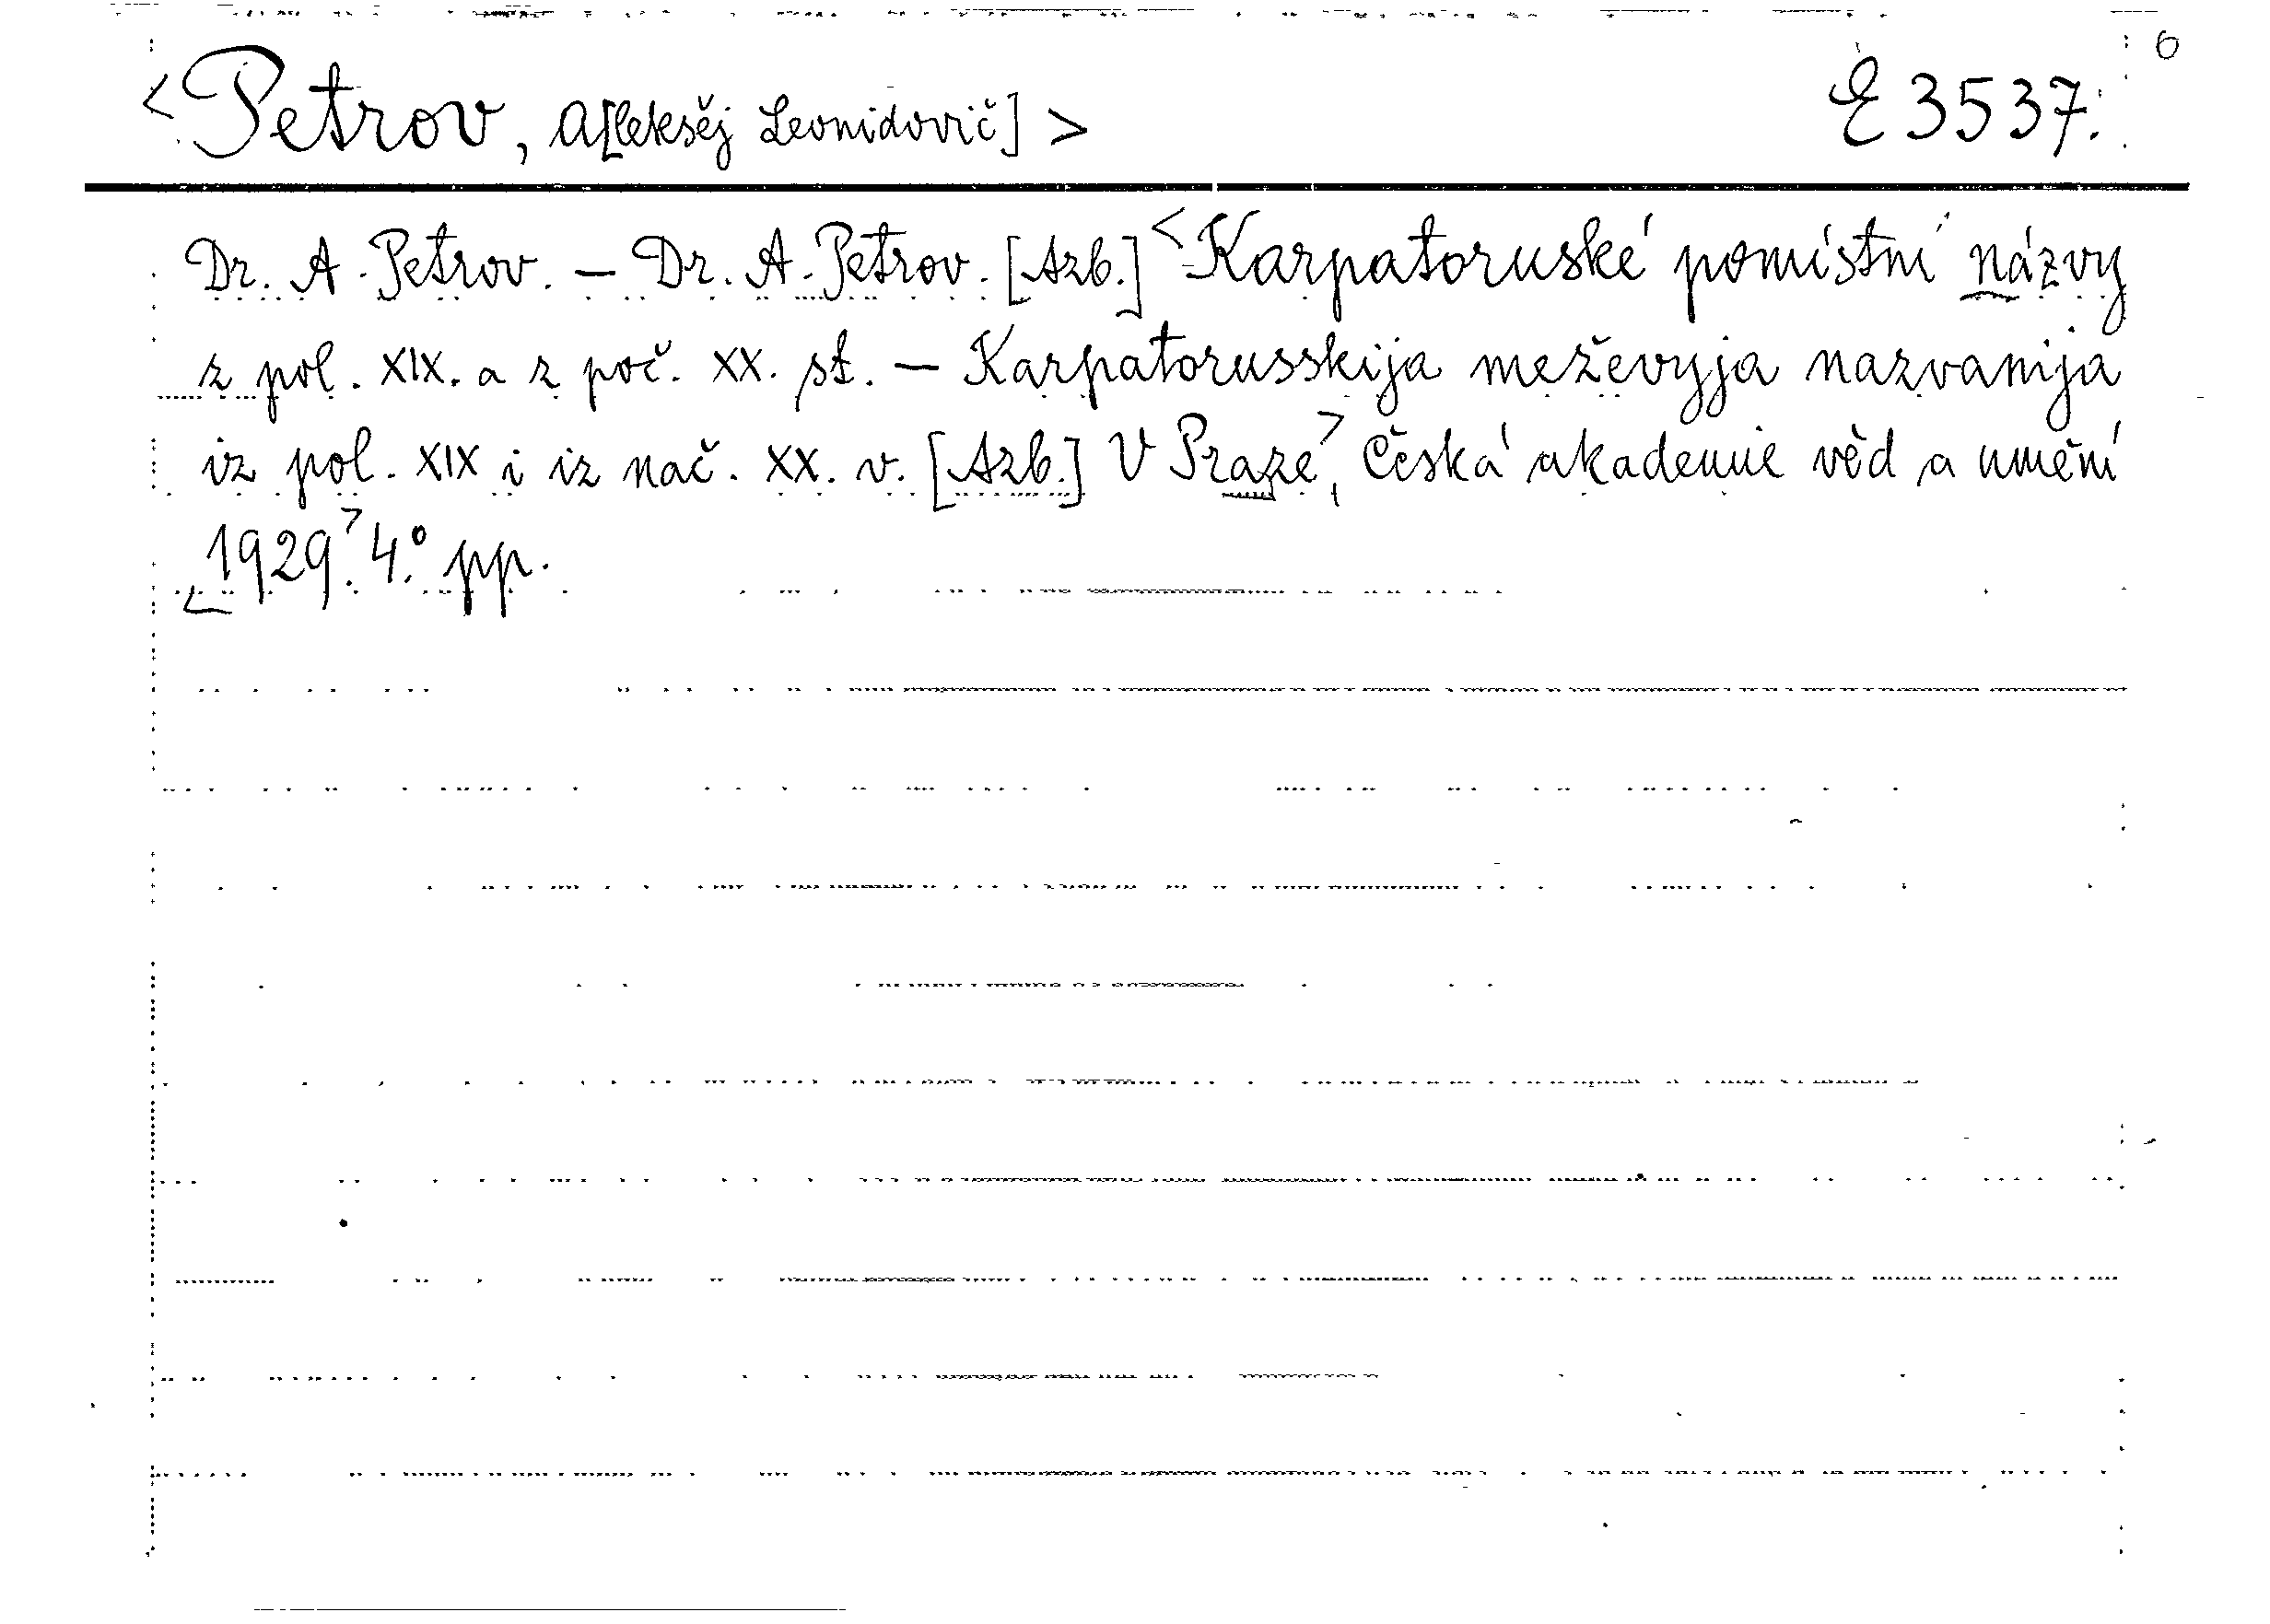 <Petrov, A[leksěj Leonidovič]> E 3537. 6
Dr. A. Petrov. – Dr. A. Petrov. [Azb.] <Karpatoruské pomístní názvy
z pol. XIX. a z poč. XX. st. – Karpatorusskija meževyja nazvanija
iz pol. XIX i iz nač. XX. v. [Azb.] V Praze>, Česká akademie věd a umění
<1929>. 4.° pp.